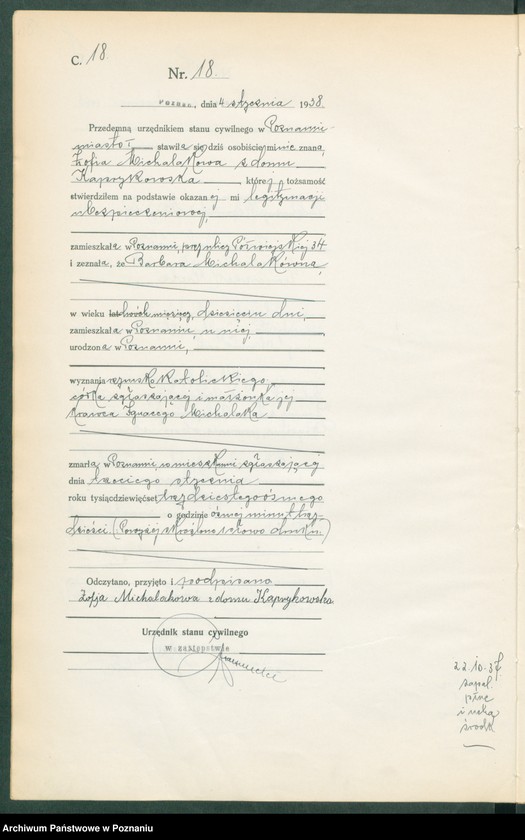 C. 18.
Nr. 18.
Poznań, dnia 4 stycznia 1938.
Przedemną urzędnikiem stanu cywilnego w Poznaniu-
miasto I stawiła się dziś osobiście, mi nie znana,
Zofia Michalakowa z domu
Kaprykowska której tożsamość
stwierdziłem na podstawie okazanej mi legitymacji
ubezpieczeniowej,
zamieszkała w Poznaniu, przy ulicy Półwiejskiej 34
i zeznała, że Barbara Michalakówna,
w wieku dziesięciu dni,
zamieszkała w Poznaniu u niej,
urodzona w Poznaniu,
wyznania rzymsko katolickiego,
córka zgłaszającej i małżonka jej
krawca Ignacego Michalaka
zmarła w Poznaniu w mieszkaniu zgłaszającej
dnia trzeciego stycznia
roku tysiącdziewięćset trzydziestegoósmego
o godzinie ósmej minut trzy-
dzieści. (Powyżej skreślono słowo druku.)
Odczytano, przyjęto i podpisano
Zofja Michalakowa z domu Kaprykowska
Urzędnik stanu cywilnego
w zastępstwie
22.10.37
zapal.
płuc
i ucha
środk.
Archiwum Państwowe w Poznaniu